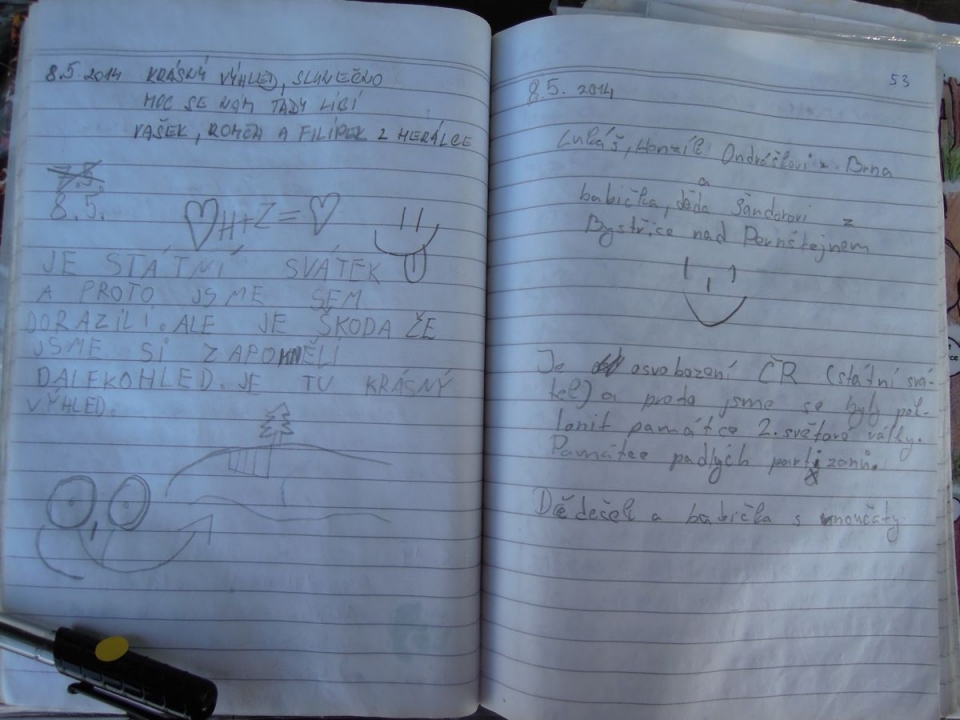 8.5.2014 KRÁSNÝ VÝHLED, SLUNEČNO
MOC SE NÁM TADY LÍBÍ
VAŠEK, ROMČA A FILÍPEK Z HERÁLCE
7.5.
8.5.
H+Z=
JE STÁTNÍ SVÁTEK
A PROTO JSME SEM
DORAZILI. ALE JE ŠKODA ŽE
JSME SI ZAPOMNĚLI
DALEKOHLED. JE TU KRÁSNÝ
VÝHLED.
53
8.5. 2014
Lukáš, Honzík Ondráčkovi z Brna
a
babička, děda Šándorovi z
Bystřice nad Pernštejnem
Je osvobození ČR (státní svá-
tek) a proto jsme se byli pok-
lonit památce 2. světové války.
Památce padlých partizánů.
Dědeček a babička s vnoučaty